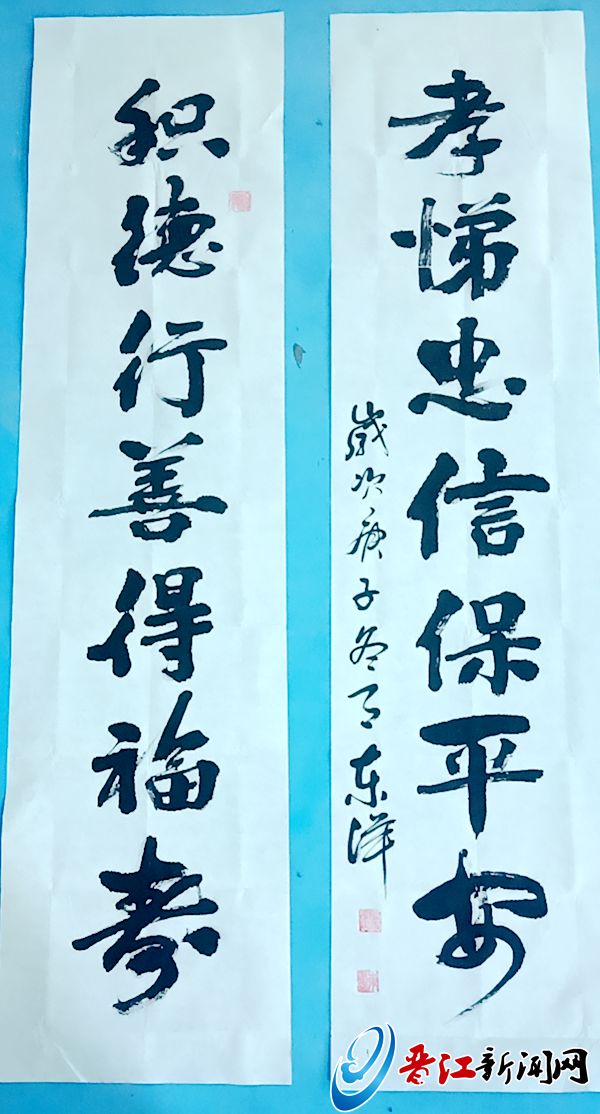 孝悌忠信保平安
岁次庚子冬月东洋
积德行善得福寿
晋江新闻网